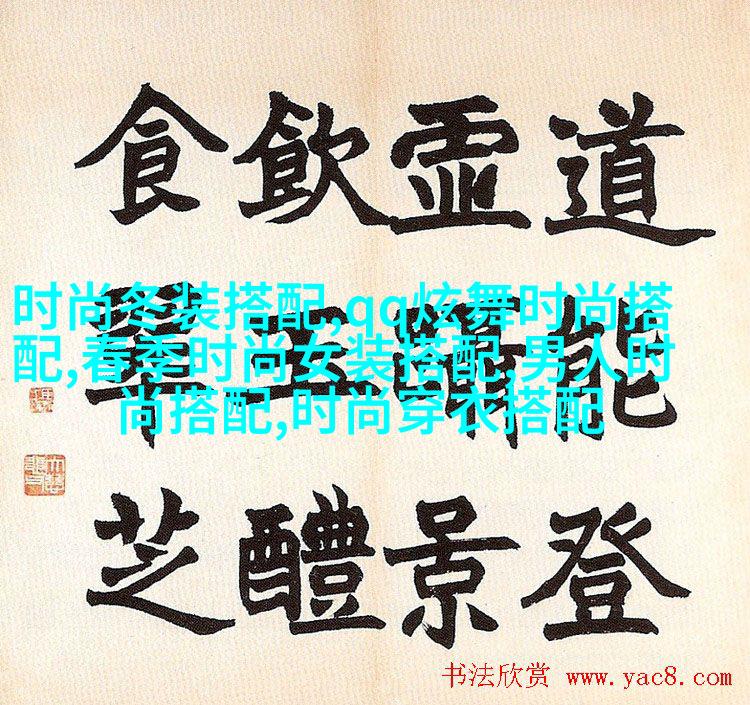 道能登
景
飲醴
食芝
时尚冬装搭配,qq炫舞时尚搭
配,春季时尚女装搭配,男人时
尚搭配,时尚穿衣搭配
书法欣赏 www.yac8.com